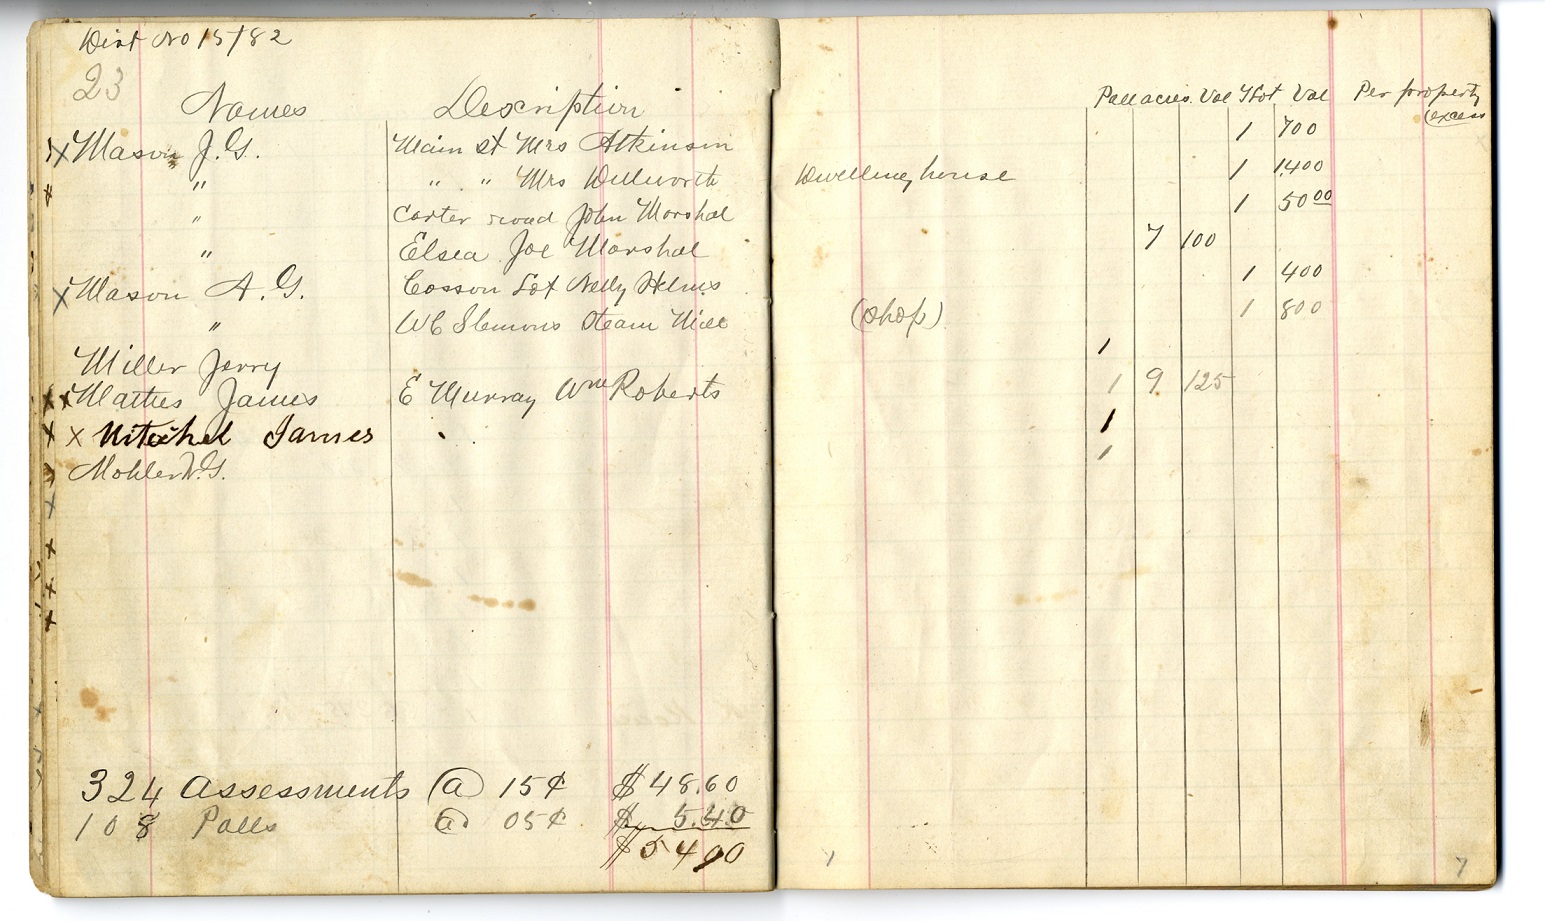 Dist No 15/82
23
Names Description Poll acres Val T Lot Val Per property
(excess
x Mason J. G. Main st Mrs Atkinson 1 700
" " " Mrs Dillworth Dwelling house 1 1400
" Carter road John Marshal 1 50 00
" Elsea Joe Marshal 7 100
x Mason A. G. Cosson Lot Nelly Helms 1 400
" WC Slemons Steam Mill (Shop) 1 800
Miller Jerry 1
x x Mathes James E Murray Wm Roberts 1 9 125
x x Mitchel James 1
Mohler W. G. 1
324 Assessments @ 15¢ $48.60
108 Polls @ 05¢ $ 5.40
$54 00
1 7